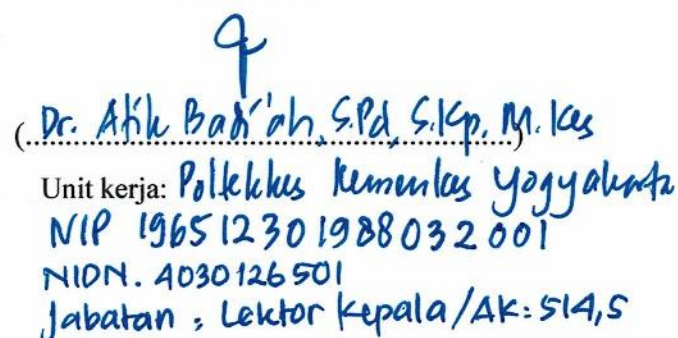 (Dr. Atik Badi'ah, S.Pd, S.Kp, M.Kes)
Unit kerja: Poltekkes Kemenkes Yogyakarta
NIP 196512301988032001
NIDN. 4030126501
Jabatan : Lektor Kepala/AK: 514,5